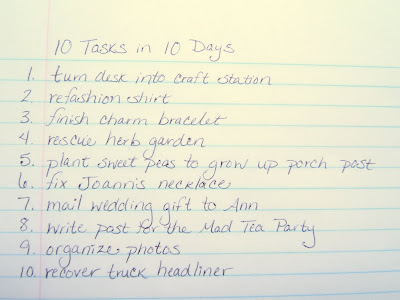 10 Tasks in 10 Days
1. turn desk into craft station
2. refashion shirt
3. finish charm bracelet
4. rescue herb garden
5. plant sweet peas to grow up porch post
6. fix Joanni's necklace
7. mail wedding gift to Ann
8. write post for the Mad Tea Party
9. organize photos
10. recover truck headliner